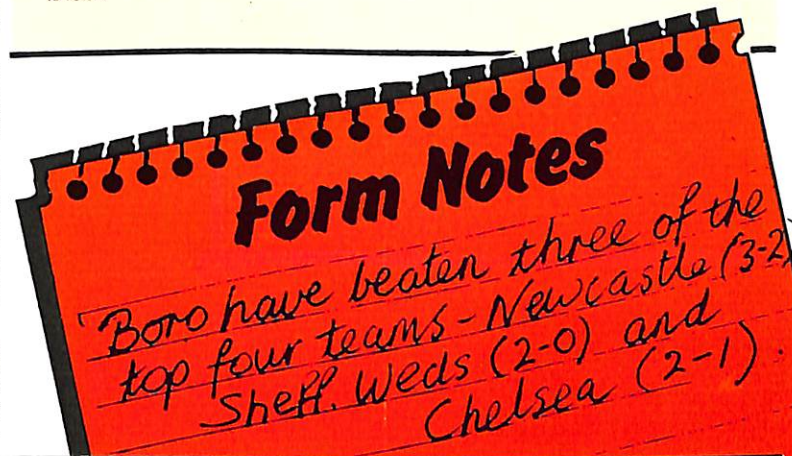 Form Notes
Boro have beaten three of the
top four teams - Newcastle (3-2)
Sheff. Weds (2-0) and
Chelsea (2-1).